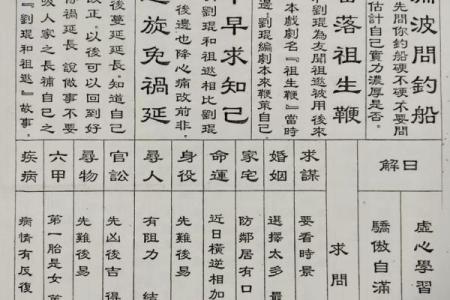 波問釣船
先問你釣船硬不硬不要問
估計自己實力濃厚是否。
落祖生鞭
劉琨為友間祖逖被用後來
本戲劇名『祖生鞭』當時
邊.劉琨編劇本來鞭策自己.
早求知己
劉琨和祖逖相比劉琨
後邊也降心痛改前非.
旋免禍延
後蔓延延長.知道自己
改正.以後可以回到好
禍延長.說做事不要
吸人家之長補自己之
『劉琨和祖逖』故事.
日解
虛心學習
驕傲自滿
求問
求謀 要看時景
婚姻 選擇太多 最
家宅 防鄰居有口
命運 近日橫逆相加
身役 先難後易
尋人 有阻力 結
官訟 先凶後吉 得
尋物 先難後易
六甲 第一胎是女
疾病 病情有反復